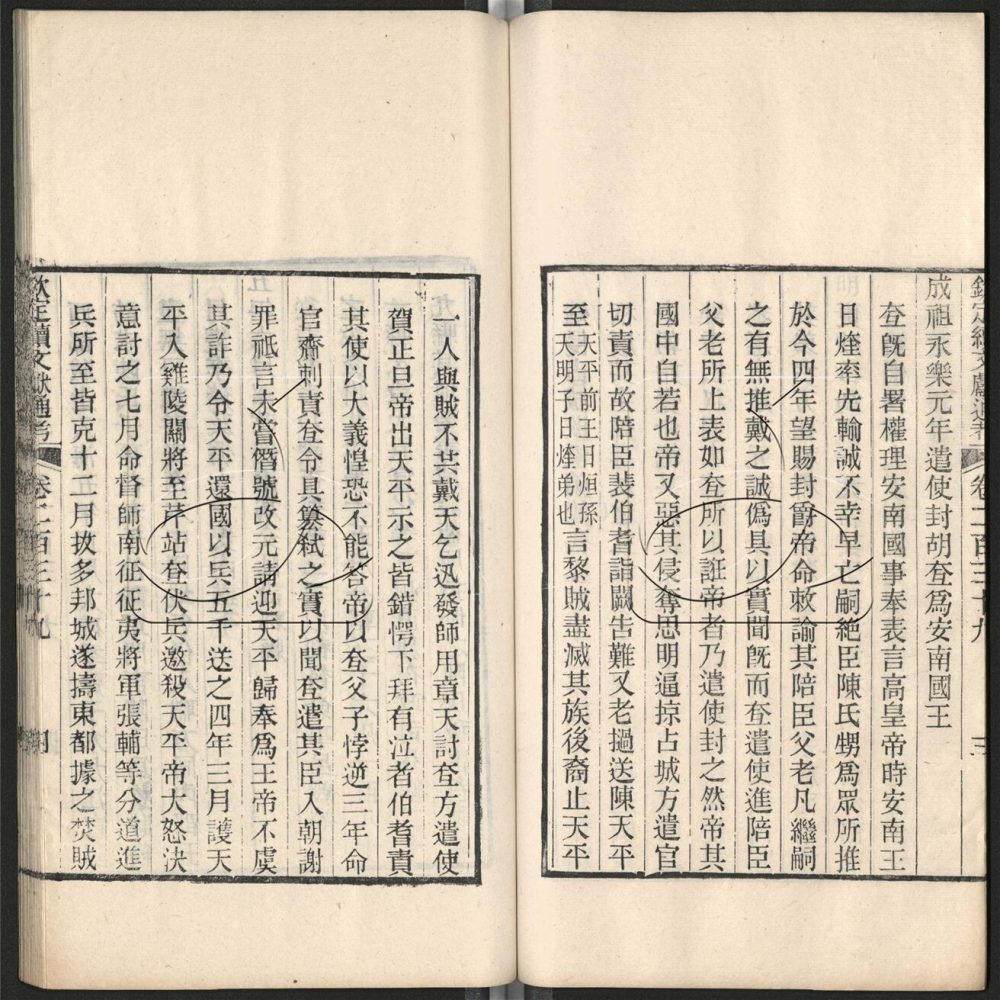 欽定續文獻通考 卷二百三十九 三
成祖永樂元年遣使封胡𡗨爲安南國王
𡗨旣自署權理安南國事奉表言高皇帝時安南王
日煃率先輸誠不幸早亡嗣絕臣陳氏甥爲眾所推
於今四年望賜封爵帝命敕諭其陪臣父老凡繼嗣
之有無推戴之誠僞具以實聞旣而𡗨遣使進陪臣
父老所上表如𡗨所以誑帝者乃遣使封之然帝其
國中自若也帝又惡其侵奪思明逼掠占城方遣官
切責而故陪臣裴伯耆詣闕告難又老撾送陳天平
至天平前王日烜孫天明子日煃弟也言黎賊盡滅其族後裔止天平
一人與賊不共戴天乞迅發師用章天討𡗨方遣使
賀正旦帝出天平示之皆錯愕下拜有泣者伯耆責
其使以大義惶恐不能答帝以𡗨父子悖逆三年命
官齋刺責𡗨令具篡弑之實以聞𡗨遣其臣入朝謝
罪祗言未嘗僭號改元請迎天平歸奉爲王帝不虞
其詐乃令天平還國以兵五千送之四年三月護天
平入雞陵關將至芹站𡗨伏兵邀殺天平帝大怒決
意討之七月命督師南征征夷將軍張輔等分道進
兵所至皆克十二月拔多邦城遂擣東都據之焚賊
欽定續文獻通考 卷二百三十九